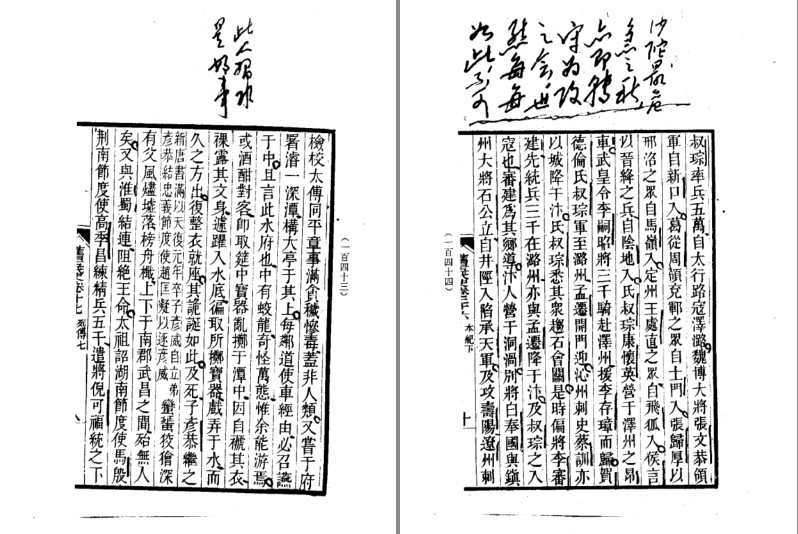 此人習水
是好事
檢校太傅同平章事滿貪穢慘毒蓋非人類又嘗于府
署濬一深潭構大亭于其上每鄰道使車經由必召讌
于中且言此水府也中有蛟龍奇怪萬態惟余能游焉
或酒酣對客卽取筵中寶器亂擲于潭中因自褫其衣
裸露其文身遽躍入水底徧取所擲寶器戲弄于水面
久之方出復整衣就座其詭誕如此及死子彥恭繼之
新唐書滿以天復元年卒子彥威自立弟
彥恭結忠義節度使趙匡凝以逐彥威
蠻蜑狡獪深
有父風燼墟落榜舟檝上下于南郡武昌之間殆無人
矣又與淮蜀結連阻絶王命太祖詔湖南節度使馬殷
荆南節度使高季昌練精兵五千遣將倪可福統之下
卷十七 列傳七
八
(一百四十三)
沙陀最危
急之秋
亦即轉
守为攻
之会也
然每每
如此
叔琮率兵五萬自太行路寇澤潞魏博大將張文恭領
軍自新口入葛從周領兗鄆之眾自土門入張歸厚以
邢洺之眾自馬嶺入定州王處直之眾自飛狐入侯言
以晉絳之兵自陰地入氏叔琮康懷英營于澤州之昂
車武皇令李嗣昭將三千騎赴澤州援李存璋而歸賀
德倫氏叔琮軍至潞州孟遷開門迎沁州刺史蔡訓亦
以城降于汴氏叔琮悉其眾趨石會關是時偏將李審
建先統兵三千在潞州亦與孟遷降于汴及叔琮之入
寇也審建爲其鄉道汴人營于洞渦別將白奉國與鎭
州大將石公立自井陘入陷承天軍及攻壽陽遼州刺
本紀下
十
(一百四十四)